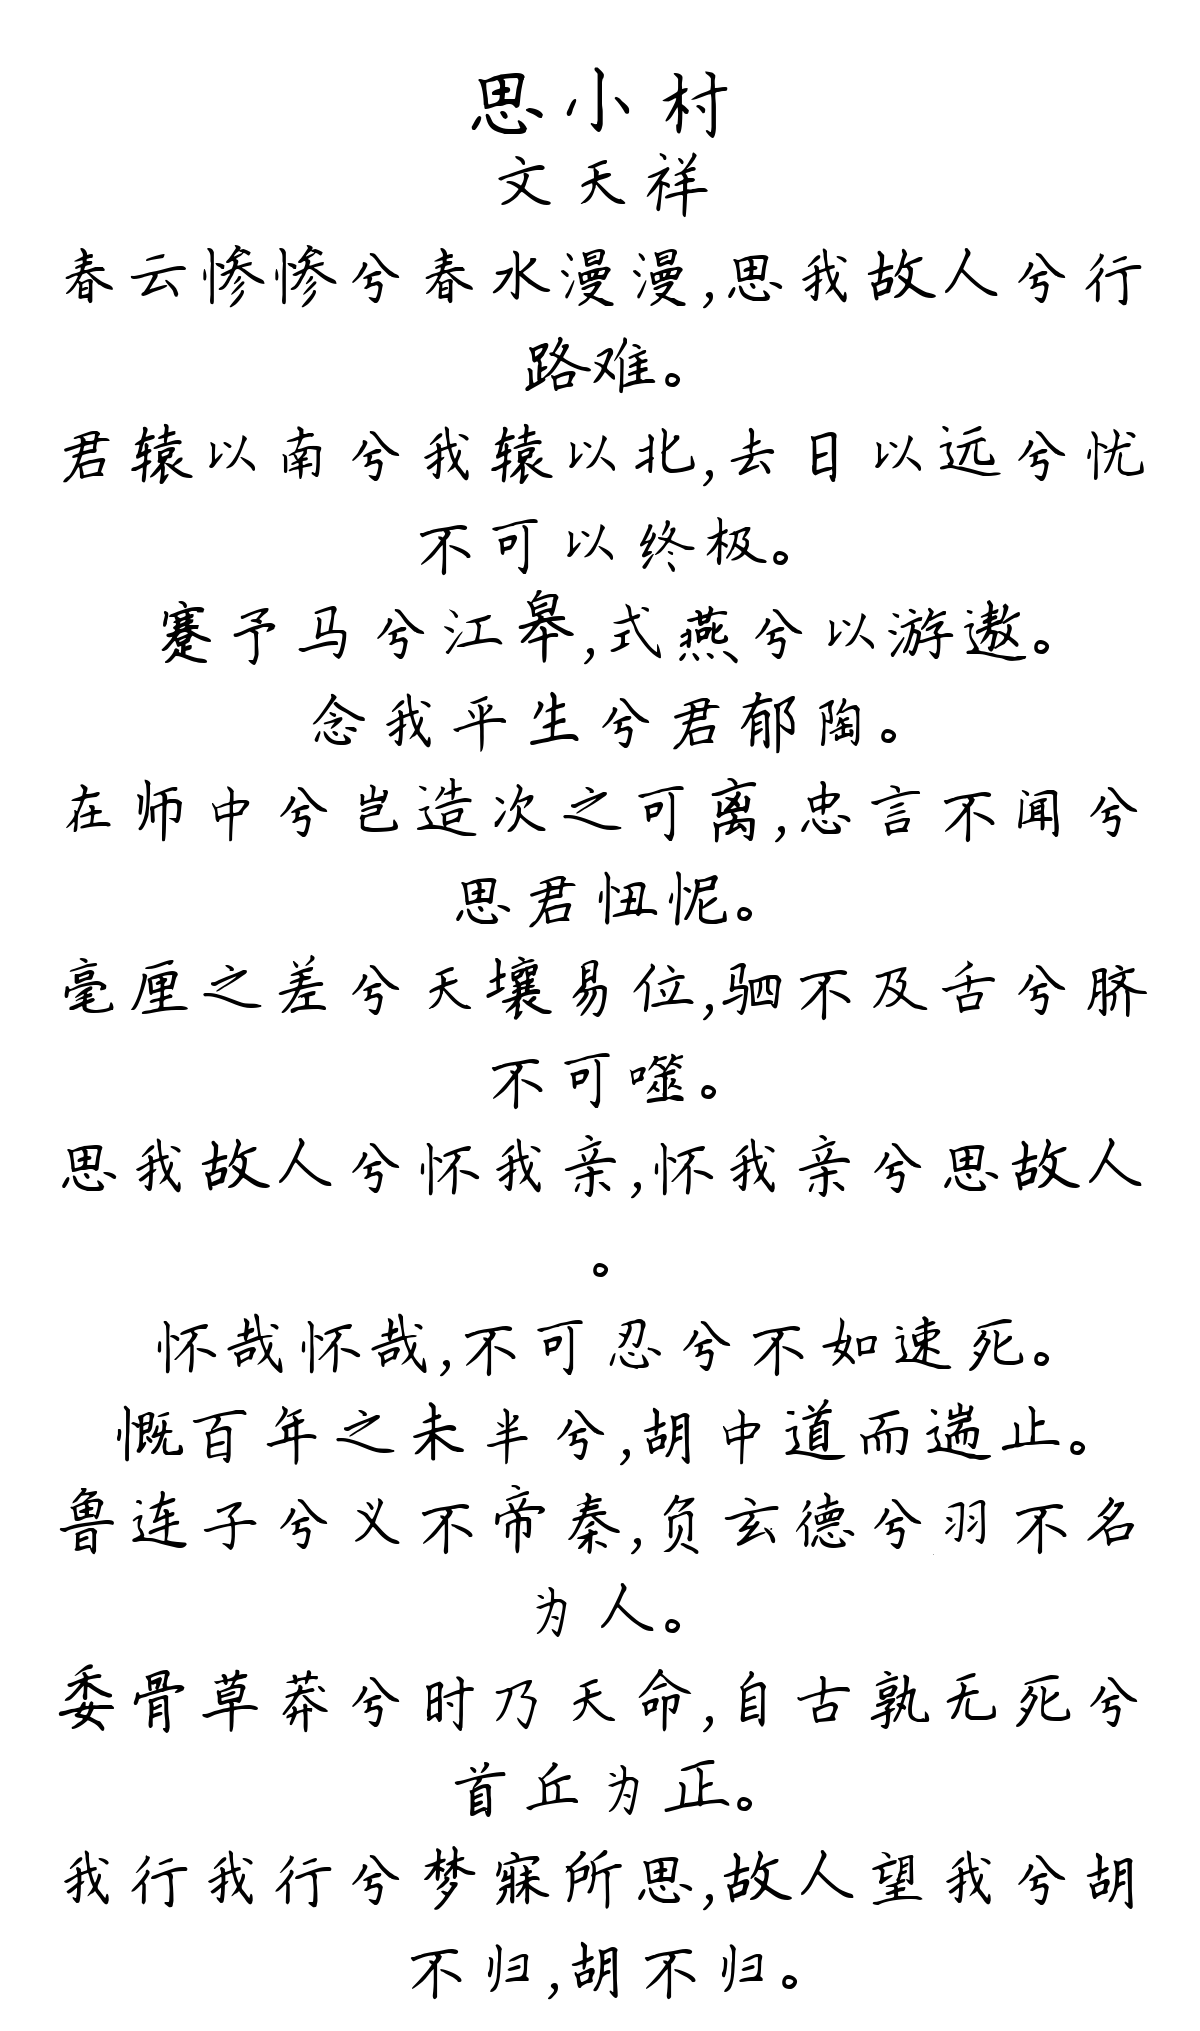 思小村
文天祥
春云惨惨兮春水漫漫,思我故人兮行
路难。
君辕以南兮我辕以北,去日以远兮忧
不可以终极。
蹇予马兮江皋,式燕兮以游遨。
念我平生兮君郁陶。
在师中兮岂造次之可离,忠言不闻兮
思君忸怩。
毫厘之差兮天壤易位,驷不及舌兮脐
不可噬。
思我故人兮怀我亲,怀我亲兮思故人
。
怀哉怀哉,不可忍兮不如速死。
慨百年之未半兮,胡中道而遄止。
鲁连子兮义不帝秦,负玄德兮羽不名
为人。
委骨草莽兮时乃天命,自古孰无死兮
首丘为正。
我行我行兮梦寐所思,故人望我兮胡
不归,胡不归。